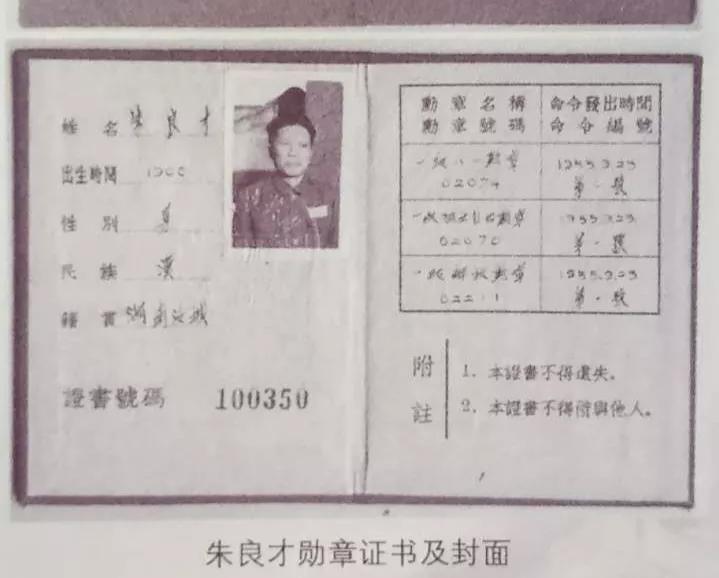 姓名 朱良才
出生時間 1900
性别 男
民族 漢
籍貫 湖南汝城
證書號碼 100350
勳章名稱 命令發出時間
勳章號碼 命令編號
一级八一勳章 1955.9.23
02074 第一號
一级独立自由勳章 1955.9.23
02070 第一號
一级解放勳章 1955.9.23
02211 第一號
附註
1. 本證書不得遺失。
2. 本證書不得借與他人。
朱良才勋章证书及封面